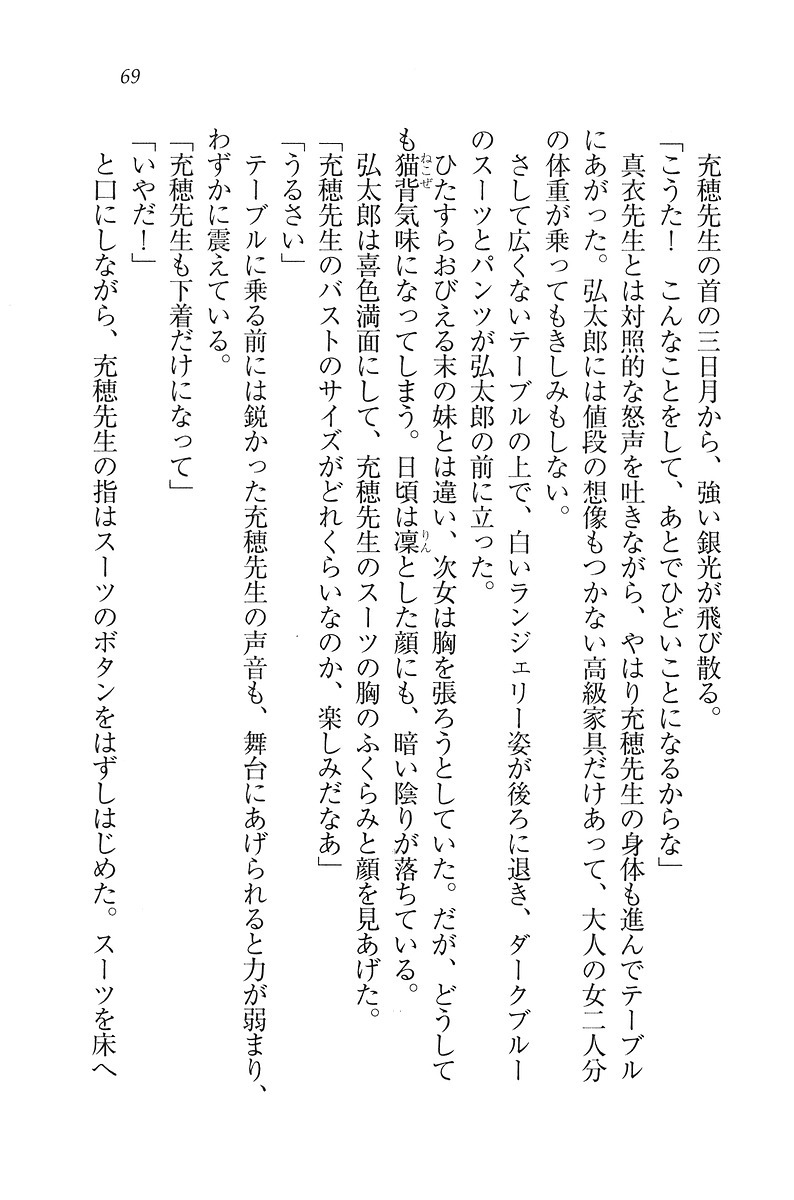 69
充穂先生の首の三日月から、強い銀光が飛び散る。
「こうた！　こんなことをして、あとでひどいことになるからな」
真衣先生とは対照的な怒声を吐きながら、やはり充穂先生の身体も進んでテーブル
にあがった。弘太郎には値段の想像もつかない高級家具だけあって、大人の女二人分
の体重が乗ってもきしみもしない。
さして広くないテーブルの上で、白いランジェリー姿が後ろに退き、ダークブルー
のスーツとパンツが弘太郎の前に立った。
ひたすらおびえる末の妹とは違い、次女は胸を張ろうとしていた。だが、どうして
も猫背気味になってしまう。日頃は凛とした顔にも、暗い陰りが落ちている。
弘太郎は喜色満面にして、充穂先生のスーツの胸のふくらみと顔を見あげた。
「充穂先生のバストのサイズがどれくらいなのか、楽しみだなあ」
「うるさい」
テーブルに乗る前には鋭かった充穂先生の声音も、舞台にあげられると力が弱まり、
わずかに震えている。
「充穂先生も下着だけになって」
「いやだ！」
と口にしながら、充穂先生の指はスーツのボタンをはずしはじめた。スーツを床へ